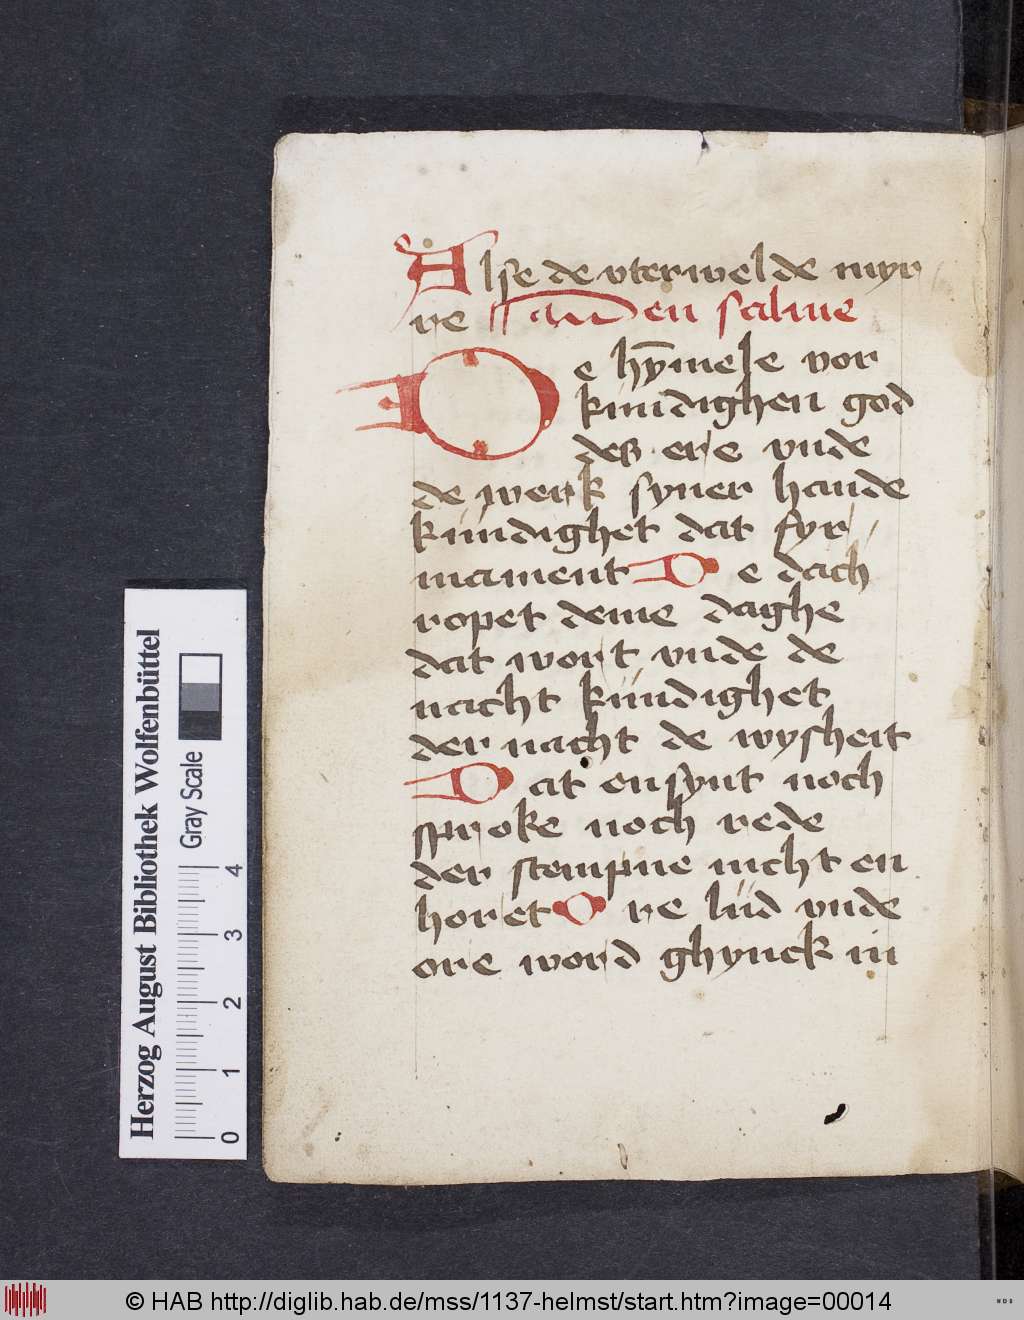 Alse de vterwelde myr
re an den salme
De hȳmele vor
kundighen god
des ere vnde
de werk syner hande
kundighet dat fyr
mament De dach
ropet deme daghe
dat wort vnde de
nacht kundighet
der nacht de wysheit
Dat ensynt noch
sproke noch rede
der stempne nicht en
horet Ore lüd vnde
ore word ghynck in
Herzog August Bibliothek Wolfenbüttel
Gray Scale
0 1 2 3 4
© HAB http://diglib.hab.de/mss/1137-helmst/start.htm?image=00014